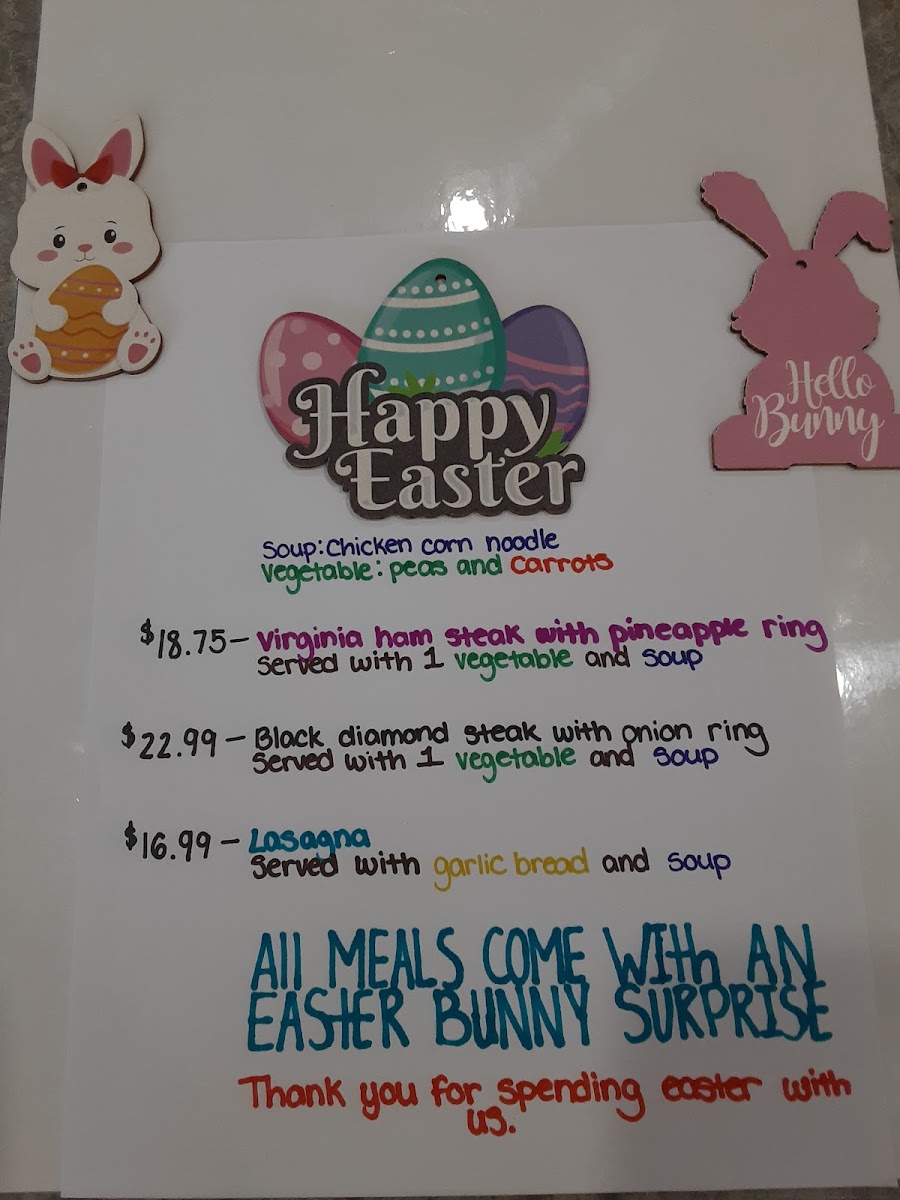 Happy
Easter
Hello
Bunny
Soup: Chicken corn noodle
Vegetable: peas and Carrots
$18.75 — Virginia ham steak with pineapple ring
Served with 1 vegetable and Soup
$22.99 — Black diamond steak with onion ring
Served with 1 vegetable and Soup
$16.99 — Lasagna
Served with garlic bread and Soup
All MEALS COME WITh AN
EASTER BUNNY SURPRISE
Thank you for spending easter with
us.